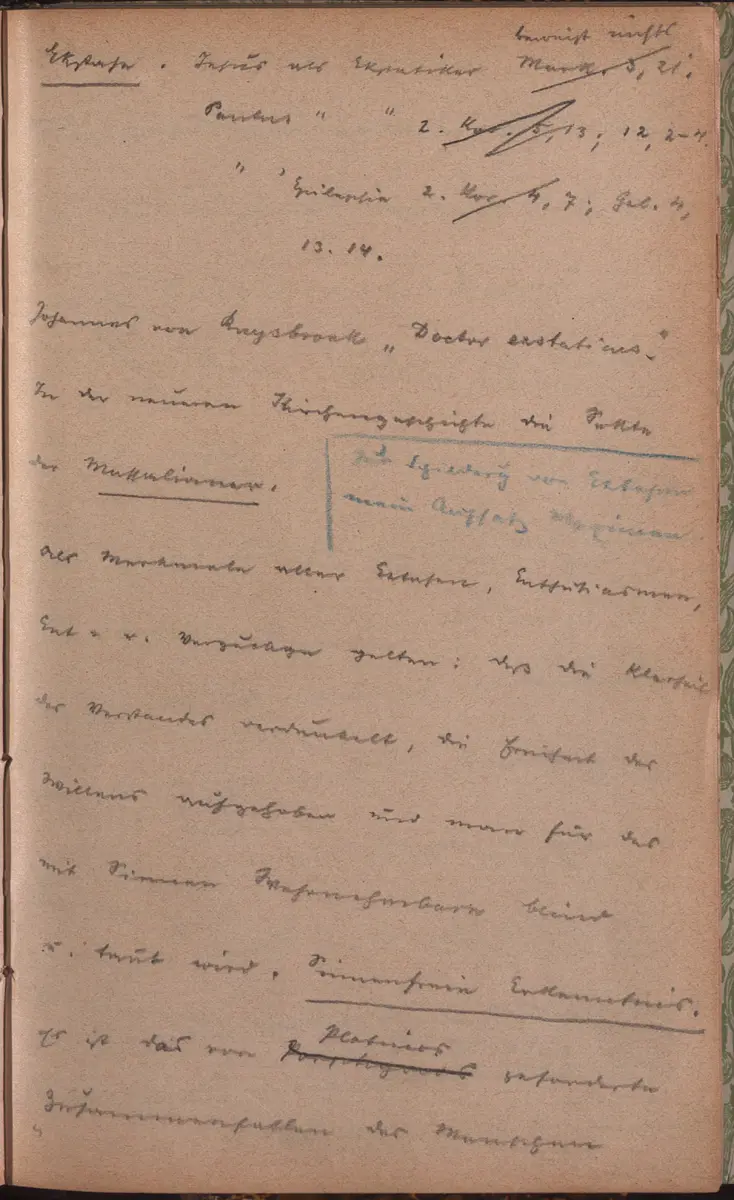 beweist nichts
Ekstase. Jesus als Ekstatiker Mark. 3, 21.
Paulus " " 2. Kor. 5, 13; 12, 2-4.
" , Epilepsie 2. Kor. 4, 7; Gal. 4,
13. 14.
Johannes von Ruysbroek „Doctor exstaticus."
In der neueren Kirchengeschichte die Sekte
der Massalianer.
Schilderg von Extasen
mein Aufsatz
Als Merkmale aller Extasen, Enthusiasmen,
Ent- u. Verzuckgn gelten: daß die Klarheit
des Verstandes verdunkelt, die Freiheit des
Willens aufgehoben und man für das
mit Sinnen Wahrnehmbare blind
u. taub wird. Sinnenfreie Erkenntnis.
Plotinos
Es ist das von Porphyrios geforderte
Zusammenfallen des Menschen